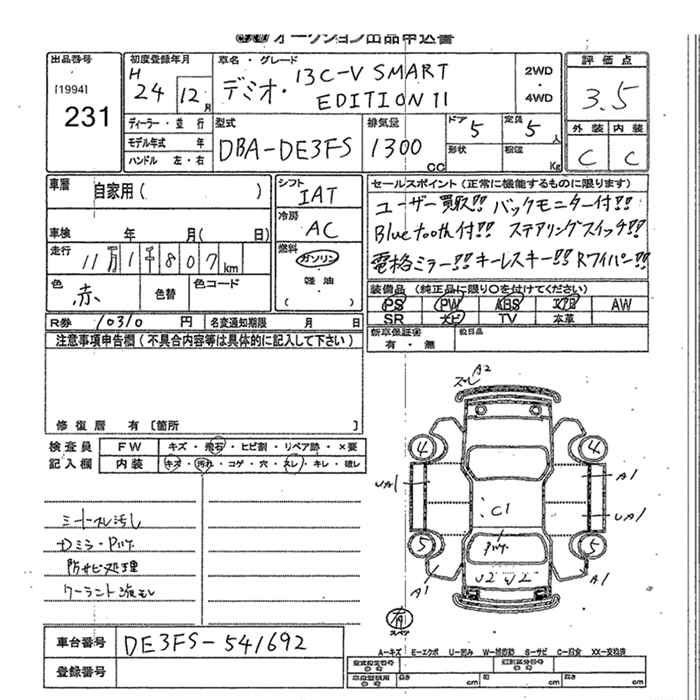 オークション出品申込書
出品番号
[1994]
231
初度登録年月
H
24 12月
車名・グレード
デミオ・ 13C-V SMART
EDITION II
2WD
・
4WD
評価点
3.5
外装 内装
C C
ディーラー・並行
モデル年式 年
ハンドル 左・右
型式
DBA-DE3FS
排気量
1300 cc
ドア 5
定員 5 人
形状
積載 Kg
車暦
自家用( )
車検 年 月( 日)
走行
11万1千807km
色
赤
色替
色コード
シフト
IAT
冷房
AC
燃料
ガソリン
・
軽油
セールスポイント(正常に機能するものに限ります)
ユーザー買取!! バックモニター付!!
Bluetooth付!! ステアリングスイッチ!!
電格ミラー!! キーレスキー!! Rワイパー!!
装備品(純正品に限り○を付けてください)
PS PW ABS エアB AW
SR ナビ TV 本革
R券 10310 円
名変通知期限 月 日
新車保証書
有・無
注意事項申告欄(不具合内容等は具体的に記入して下さい)
修復歴 有〔箇所 〕
検査員
記入欄
FW キズ・飛石・ヒビ割・リペア跡・×要
内装 キズ・汚れ・コゲ・穴・スレ・キレ・破レ
シートスレ汚し
防サビ処理
クーラント流モレ
A2
スレ
4 4
UA1
A1
C1
UA1
5 5
A1
U2 W2
A1
有
スペア
A－キズ E－エクボ U－凹み S－サビ XX－交換済
車台番号 DE3FS-541692
登録番号
型式指定番号
類別区分番号
長さ cm 幅 cm 高さ cm